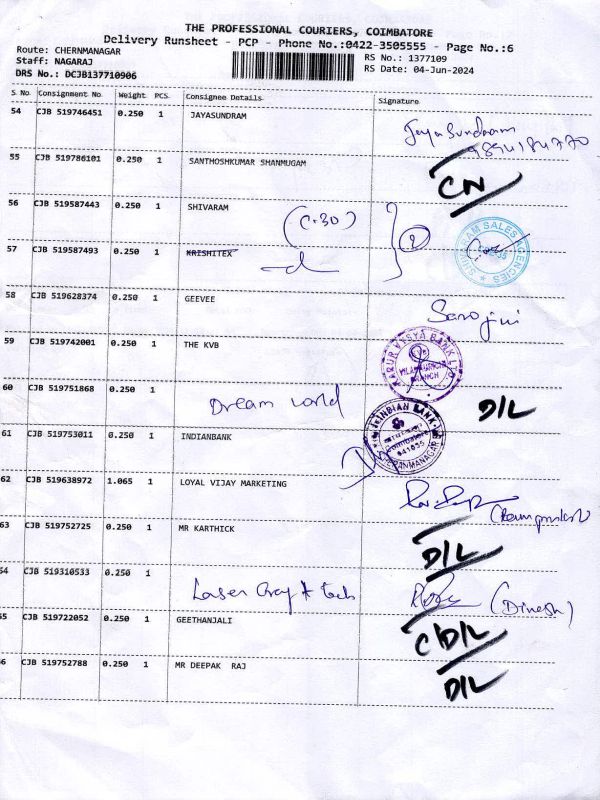 THE PROFESSIONAL COURIERS, COIMBATORE
Delivery Runsheet - PCP - Phone No.:0422-3505555 - Page No.:6
Route: CHERNMANAGAR
Staff: NAGARAJ
DRS No.: DCJB137710906
RS No.: 1377109
RS Date: 04-Jun-2024
S No Consignment No Weight PCS Consignee Details Signature
54 CJB 519746451 0.250 1 JAYASUNDRAM Jaya Sundaram
55 CJB 519786101 0.250 1 SANTHOSHKUMAR SHANMUGAM CN
56 CJB 519587443 0.250 1 SHIVARAM (C.30) 2
SALES AGENCIES
57 CJB 519587493 0.250 1 KRISHITEX
58 CJB 519628374 0.250 1 GEEVEE Sarojini
59 CJB 519742001 0.250 1 THE KVB
KARUR VYSYA BANK LTD
BRANCH
60 CJB 519751868 0.250 1 Dream world D/L
61 CJB 519753011 0.250 1 INDIANBANK
INDIAN BANK
641035
CHERANMANAGAR
62 CJB 519638972 1.065 1 LOYAL VIJAY MARKETING
63 CJB 519752725 0.250 1 MR KARTHICK D/L
54 CJB 519310533 0.250 1 Laser Tech (Dinesh)
55 CJB 519722052 0.250 1 GEETHANJALI C D/L
6 CJB 519752788 0.250 1 MR DEEPAK RAJ D/L